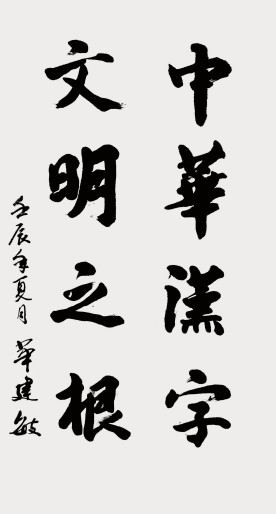 中華漢字
文明之根
壬辰年夏月華建敏